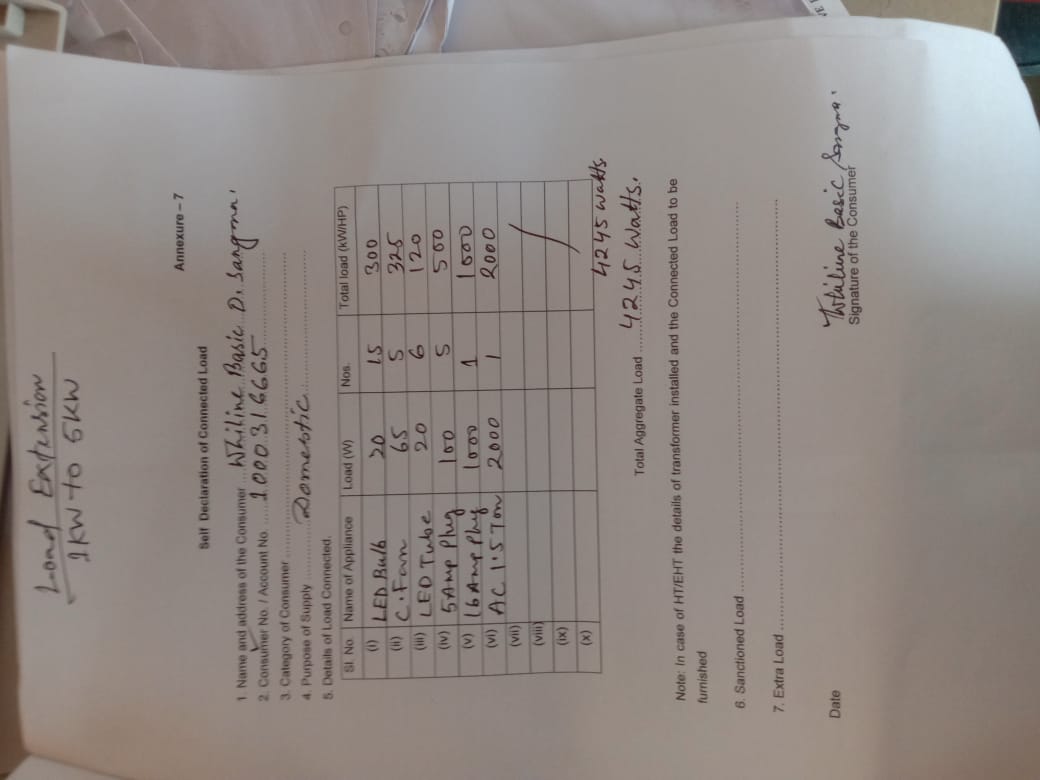 Load Extension
1KW to 5KW
Annexure – 7
Self Declaration of Connected Load
1. Name and address of the Consumer ... Whiline Basic D. Sangma.
2. Consumer No. / Account No. ... 1000316665
3. Category of Consumer
4. Purpose of Supply ... Domestic
5. Details of Load Connected.
Sl. No. Name of Appliance Load (W) Nos. Total load (kW/HP)
(i) LED Bulb 20 15 300
(ii) C. Fan 65 5 325
(iii) LED Tube 20 6 120
(iv) 5Amp Plug 100 5 500
(v) 16Amp Plug 1000 1 1000
(vi) AC 1.5 Ton 2000 1 2000
(vii)
(viii)
(ix)
(x)
4245 watts
Total Aggregate Load ... 4245 Watts.
Note: In case of HT/EHT the details of transformer installed and the Connected Load to be
furnished
6. Sanctioned Load
7. Extra Load
Whiline Basic Sangma.
Date Signature of the Consumer